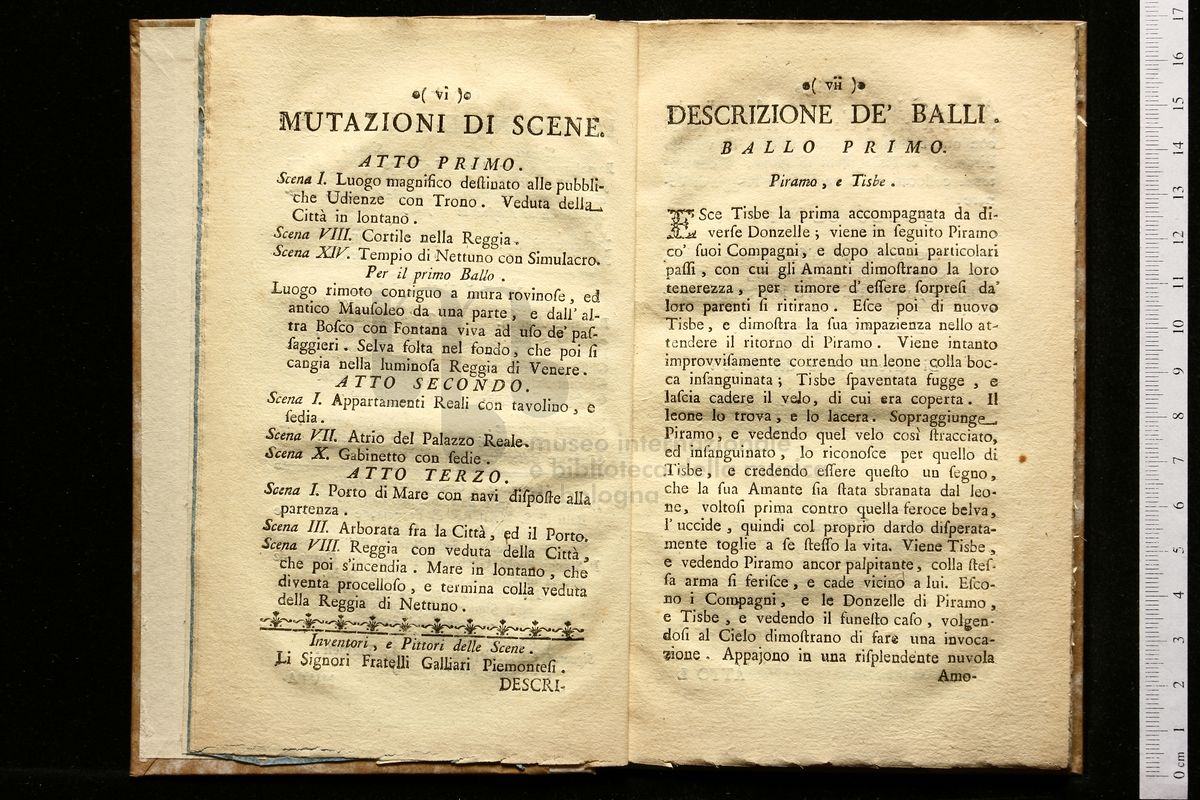 ( vi )
MUTAZIONI DI SCENE.
ATTO PRIMO.
Scena I. Luogo magnifico deſtinato alle pubbli-
che Udienze con Trono. Veduta della
Città in lontano.
Scena VIII. Cortile nella Reggia.
Scena XIV. Tempio di Nettuno con Simulacro.
Per il primo Ballo.
Luogo rimoto contiguo a mura rovinoſe, ed
antico Mauſoleo da una parte, e dall' al-
tra Boſco con Fontana viva ad uſo de' paſ-
ſaggieri. Selva folta nel fondo, che poi ſi
cangia nella luminoſa Reggia di Venere.
ATTO SECONDO.
Scena I. Appartamenti Reali con tavolino, e
ſedia.
Scena VII. Atrio del Palazzo Reale.
Scena X. Gabinetto con ſedie.
ATTO TERZO.
Scena I. Porto di Mare con navi diſpoſte alla
partenza.
Scena III. Arborata fra la Città, ed il Porto.
Scena VIII. Reggia con veduta della Città,
che poi s'incendia. Mare in lontano, che
diventa procelloſo, e termina colla veduta
della Reggia di Nettuno.
Inventori, e Pittori delle Scene.
Li Signori Fratelli Galliari Piemonteſi.
DESCRI-
( vii )
DESCRIZIONE DE' BALLI.
BALLO PRIMO.
Piramo, e Tisbe.
ESce Tisbe la prima accompagnata da di-
verſe Donzelle; viene in ſeguito Piramo
co' ſuoi Compagni, e dopo alcuni particolari
paſſi, con cui gli Amanti dimoſtrano la loro
tenerezza, per timore d' eſſere ſorpreſi da'
loro parenti ſi ritirano. Eſce poi di nuovo
Tisbe, e dimoſtra la ſua impazienza nello at-
tendere il ritorno di Piramo. Viene intanto
improvviſamente correndo un leone colla boc-
ca inſanguinata; Tisbe ſpaventata fugge, e
laſcia cadere il velo, di cui era coperta. Il
leone lo trova, e lo lacera. Sopraggiunge
Piramo, e vedendo quel velo così ſtracciato,
ed inſanguinato, lo riconoſce per quello di
Tisbe, e credendo eſſere queſto un ſegno,
che la ſua Amante ſia ſtata sbranata dal leo-
ne, voltoſi prima contro quella feroce belva,
l' uccide, quindi col proprio dardo diſperata-
mente toglie a ſe ſteſſo la vita. Viene Tisbe,
e vedendo Piramo ancor palpitante, colla ſteſ-
ſa arma ſi feriſce, e cade vicino a lui. Eſco-
no i Compagni, e le Donzelle di Piramo,
e Tisbe, e vedendo il funeſto caſo, volgen-
doſi al Cielo dimoſtrano di fare una invoca-
zione. Appajono in una riſplendente nuvola
Amo-
museo internazionale
e biblioteca della
bologna
0 cm 1 2 3 4 5 6 7 8 9 10 11 12 13 14 15 16 17